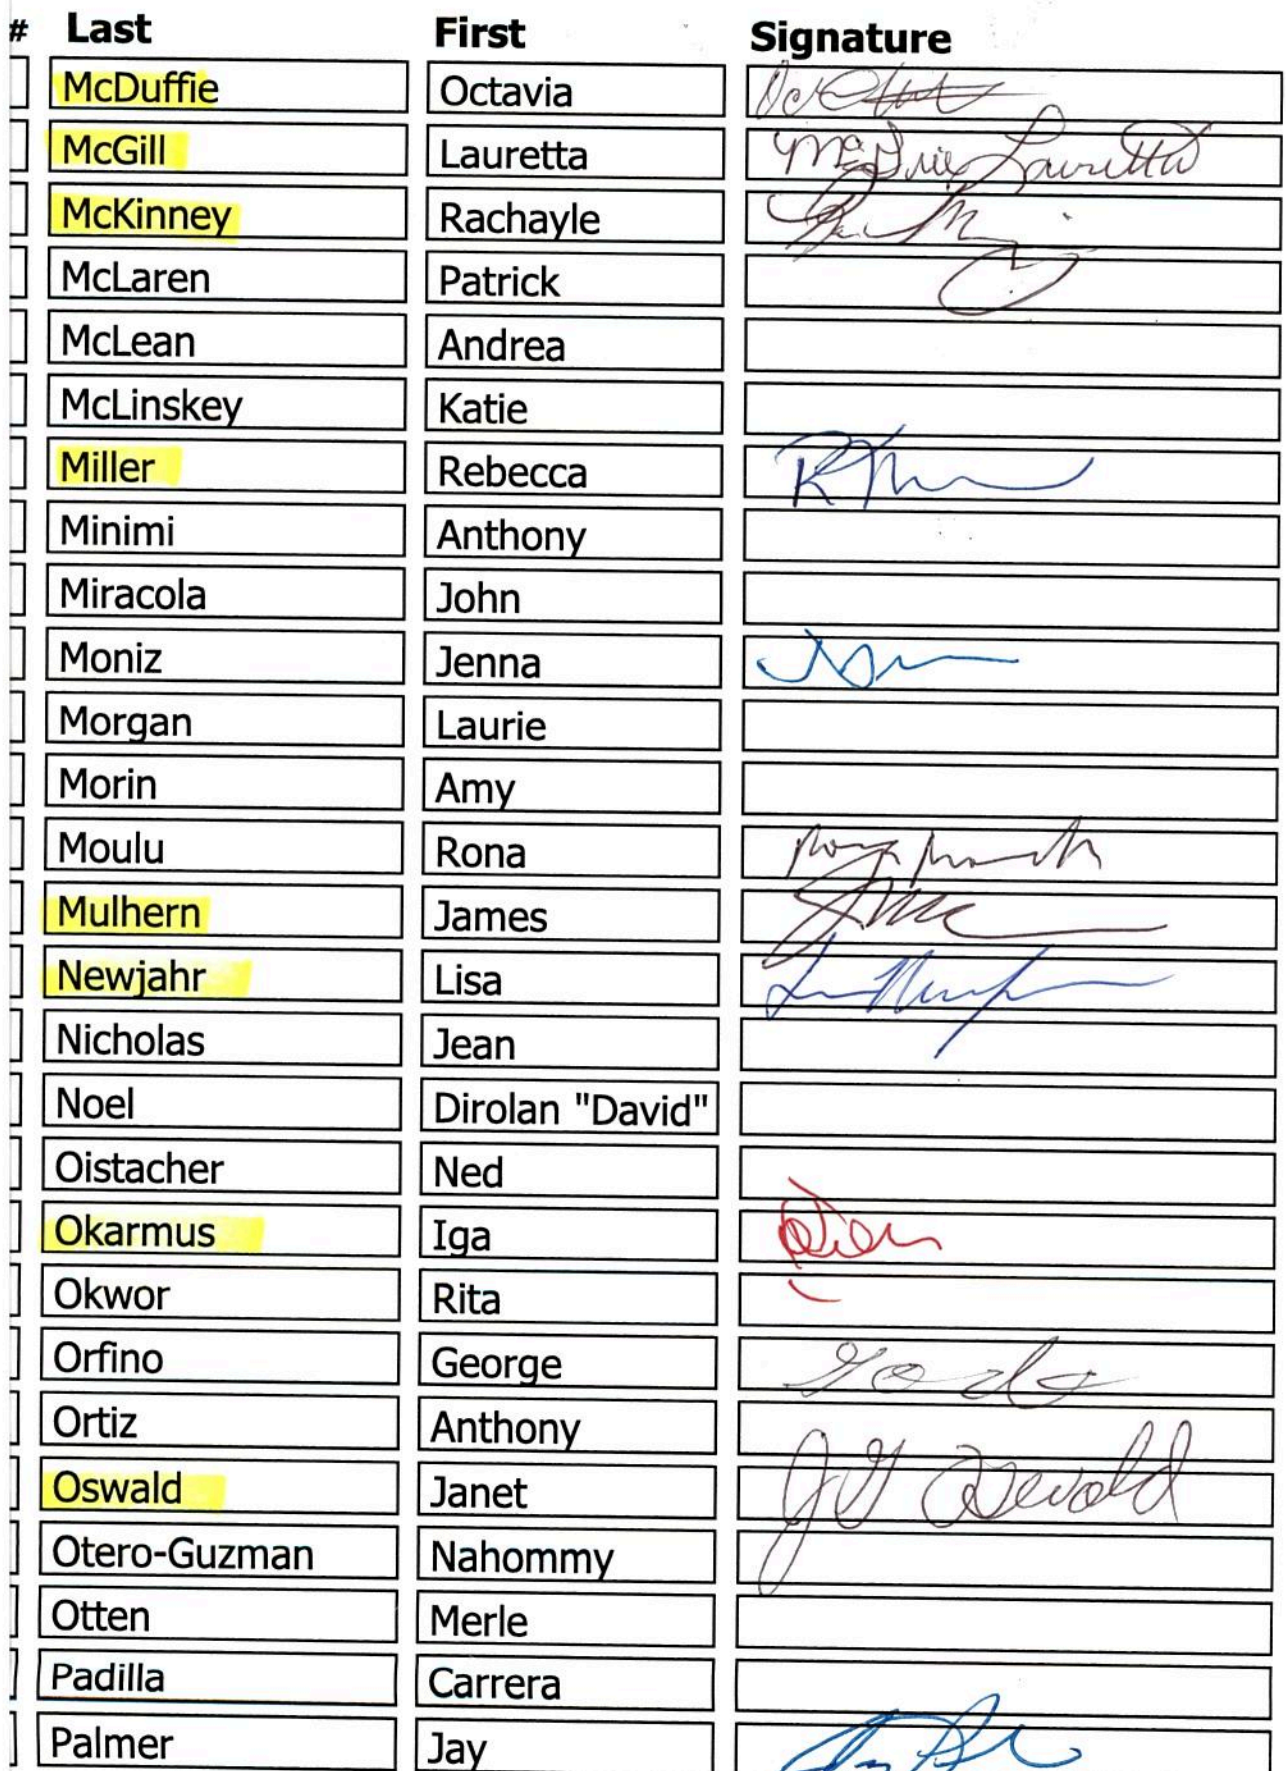 # Last First Signature
McDuffie Octavia
McGill Lauretta Lauretta
McKinney Rachayle
McLaren Patrick
McLean Andrea
McLinskey Katie
Miller Rebecca
Minimi Anthony
Miracola John
Moniz Jenna
Morgan Laurie
Morin Amy
Moulu Rona
Mulhern James
Newjahr Lisa
Nicholas Jean
Noel Dirolan "David"
Oistacher Ned
Okarmus Iga
Okwor Rita
Orfino George
Ortiz Anthony
Oswald Janet Oswald
Otero-Guzman Nahommy
Otten Merle
Padilla Carrera
Palmer Jay